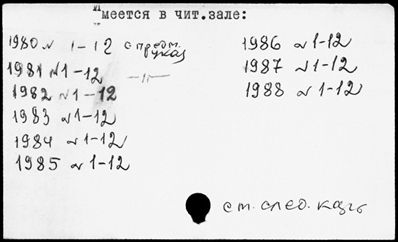 Имеется в чит.зале:
1980 № 1-12 с предм. указ
1981 № 1-12 —"—
1982 № 1-12
1983 № 1-12
1984 № 1-12
1985 № 1-12
1986 № 1-12
1987 № 1-12
1988 № 1-12
см. след.